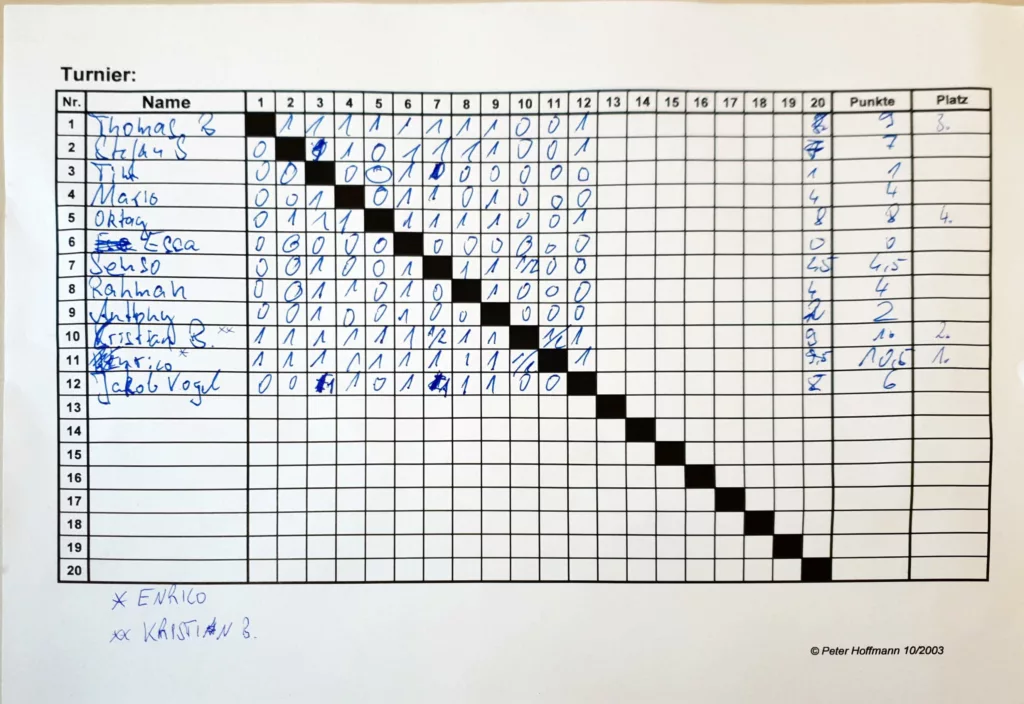 Turnier:
Nr. Name 1 2 3 4 5 6 7 8 9 10 11 12 13 14 15 16 17 18 19 20 Punkte Platz
1 Thomas B 1 1 1 1 1 1 1 1 0 0 1 8 9 3.
2 Stefan S 0 1 0 1 1 1 1 0 0 1 7 7
3 Tim 0 0 0 0 1 0 0 0 0 0 0 1 1
4 Mario 0 0 1 0 1 1 0 1 0 0 0 4 4
5 Oktay 0 1 1 1 1 1 1 1 0 0 1 8 8 4.
6 Esca 0 0 0 0 0 0 0 0 0 0 0 0 0
7 Senso 0 0 1 0 0 1 1 1 1/2 0 0 4,5 4,5
8 Rahman 0 0 1 1 0 1 0 1 0 0 0 4 4
9 Anthony 0 0 1 0 0 1 0 0 0 0 0 2 2
10 Kristian B. xx 1 1 1 1 1 1 1/2 1 1 1/2 1 9 2.
11 Enrico * 1 1 1 1 1 1 1 1 1 1/2 1 9,5 10,5 1.
12 Jakob Vogel 0 0 1 1 0 1 1 1 1 0 0 6
13
14
15
16
17
18
19
20
* ENRICO
xx KRISTIAN B.
© Peter Hoffmann 10/2003